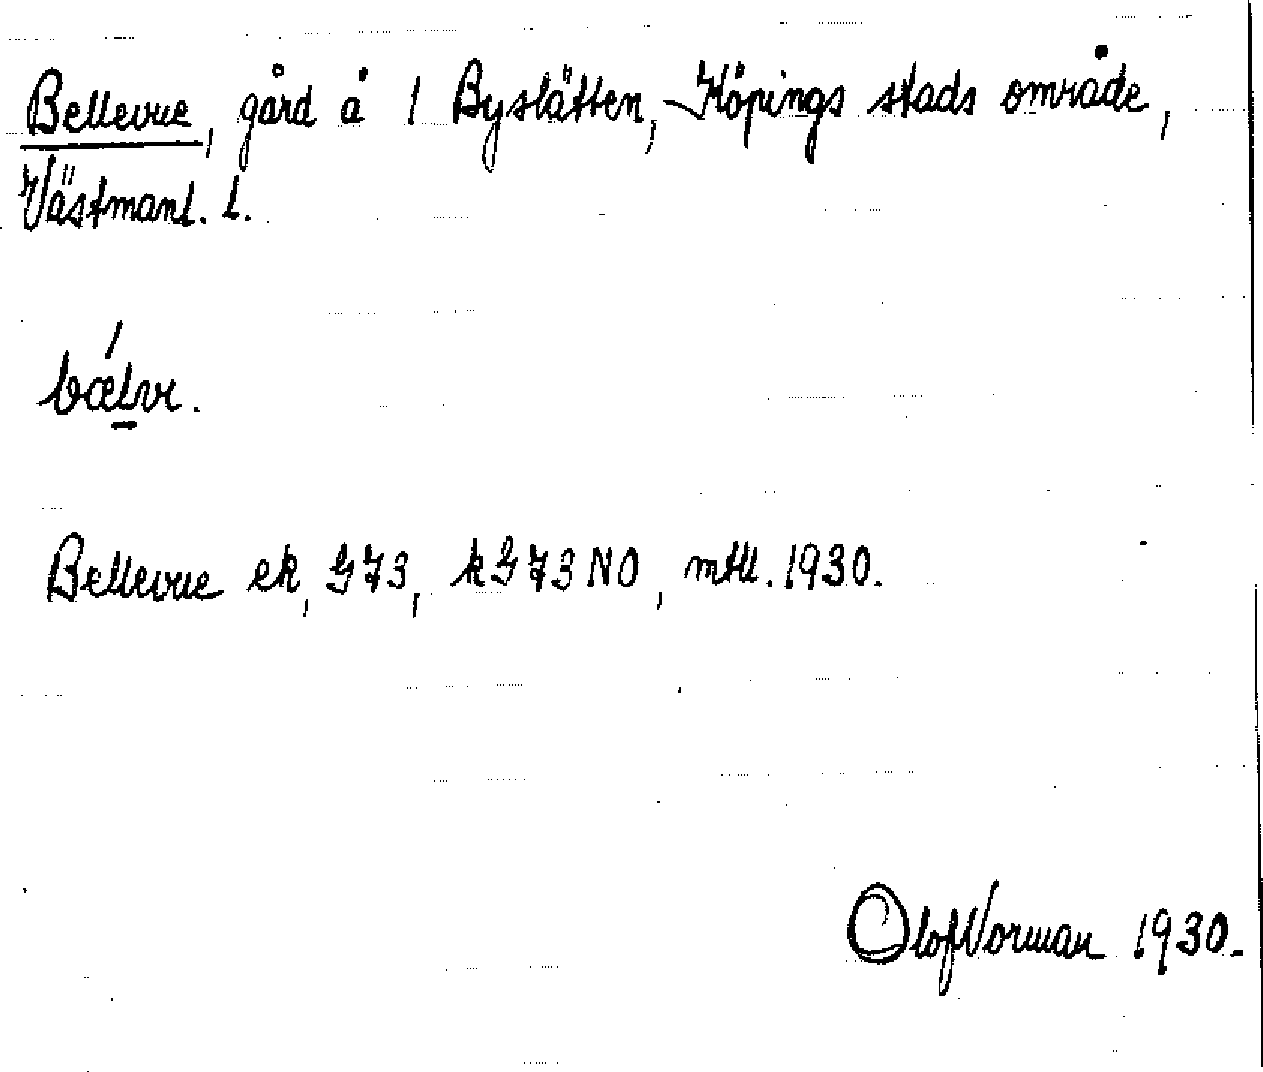 Bellevue, gård å 1 Byslätten, Köpings stads område,
Västmanl. l.
bǽlvı.
Bellevue ek, G73, kG73NO, mtll. 1930.
Olof Vorman 1930.